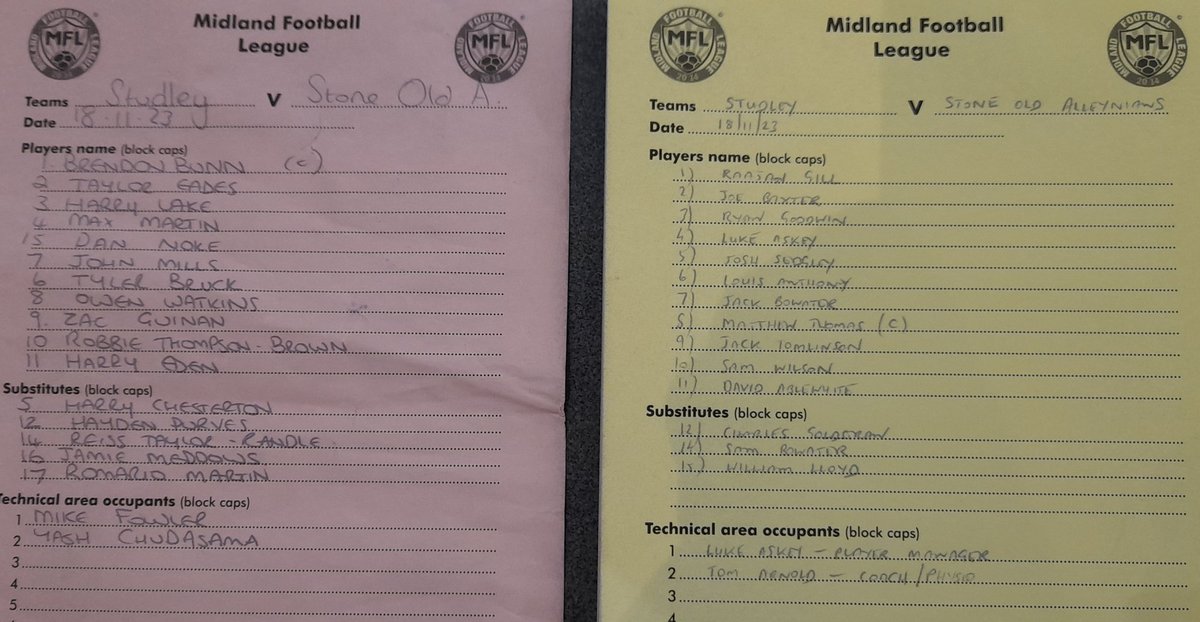 Midland Football
League
MIDLAND FOOTBALL LEAGUE
MFL
MIDLAND FOOTBALL LEAGUE
MFL
Teams Studley V Stone Old A.
Date 18.11.23
Players name (block caps)
1. BRENDON BUNN (C)
2 TAYLOR EADES
3 HARRY LAKE
4 MAX MARTIN
15 DAN NOKE
7 JOHN MILLS
6 TYLER BRUCK
8 OWEN WATKINS
9. ZAC GUINAN
10 ROBBIE THOMPSON-BROWN
11 HARRY EDEN
Substitutes (block caps)
5 HARRY CHESTERTON
12 HAYDEN PURVES
14 REISS TAYLOR-RANDLE
16 JAMIE MEDDOWS
17 ROMARIO MARTIN
Technical area occupants (block caps)
1 MIKE FOWLER
2 YASH CHUDASAMA
3
4
5
Midland Football
League
MIDLAND FOOTBALL LEAGUE
MFL
2014
MIDLAND FOOTBALL LEAGUE
MFL
2014
Teams STUDLEY V STONE OLD ALLEYNIANS
Date 18/11/23
Players name (block caps)
1) RAAJAN GILL
2) JOE BAXTER
3) RYAN GOODWIN
4) LUKE ASKEY
5) JOSH SEDGLEY
6) LOUIS ANTHONY
7) JACK BOWATER
8) MATTHEW THOMAS (C)
9) JACK TOMLINSON
10) SAM WILSON
11) DAVID ABLEWHITE
Substitutes (block caps)
12) CHARLES
14) SAM BOWATER
15) WILLIAM LLOYD
Technical area occupants (block caps)
1 LUKE ASKEY - PLAYER MANAGER
2 TOM ARNOLD - COACH/PHYSIO
3
4